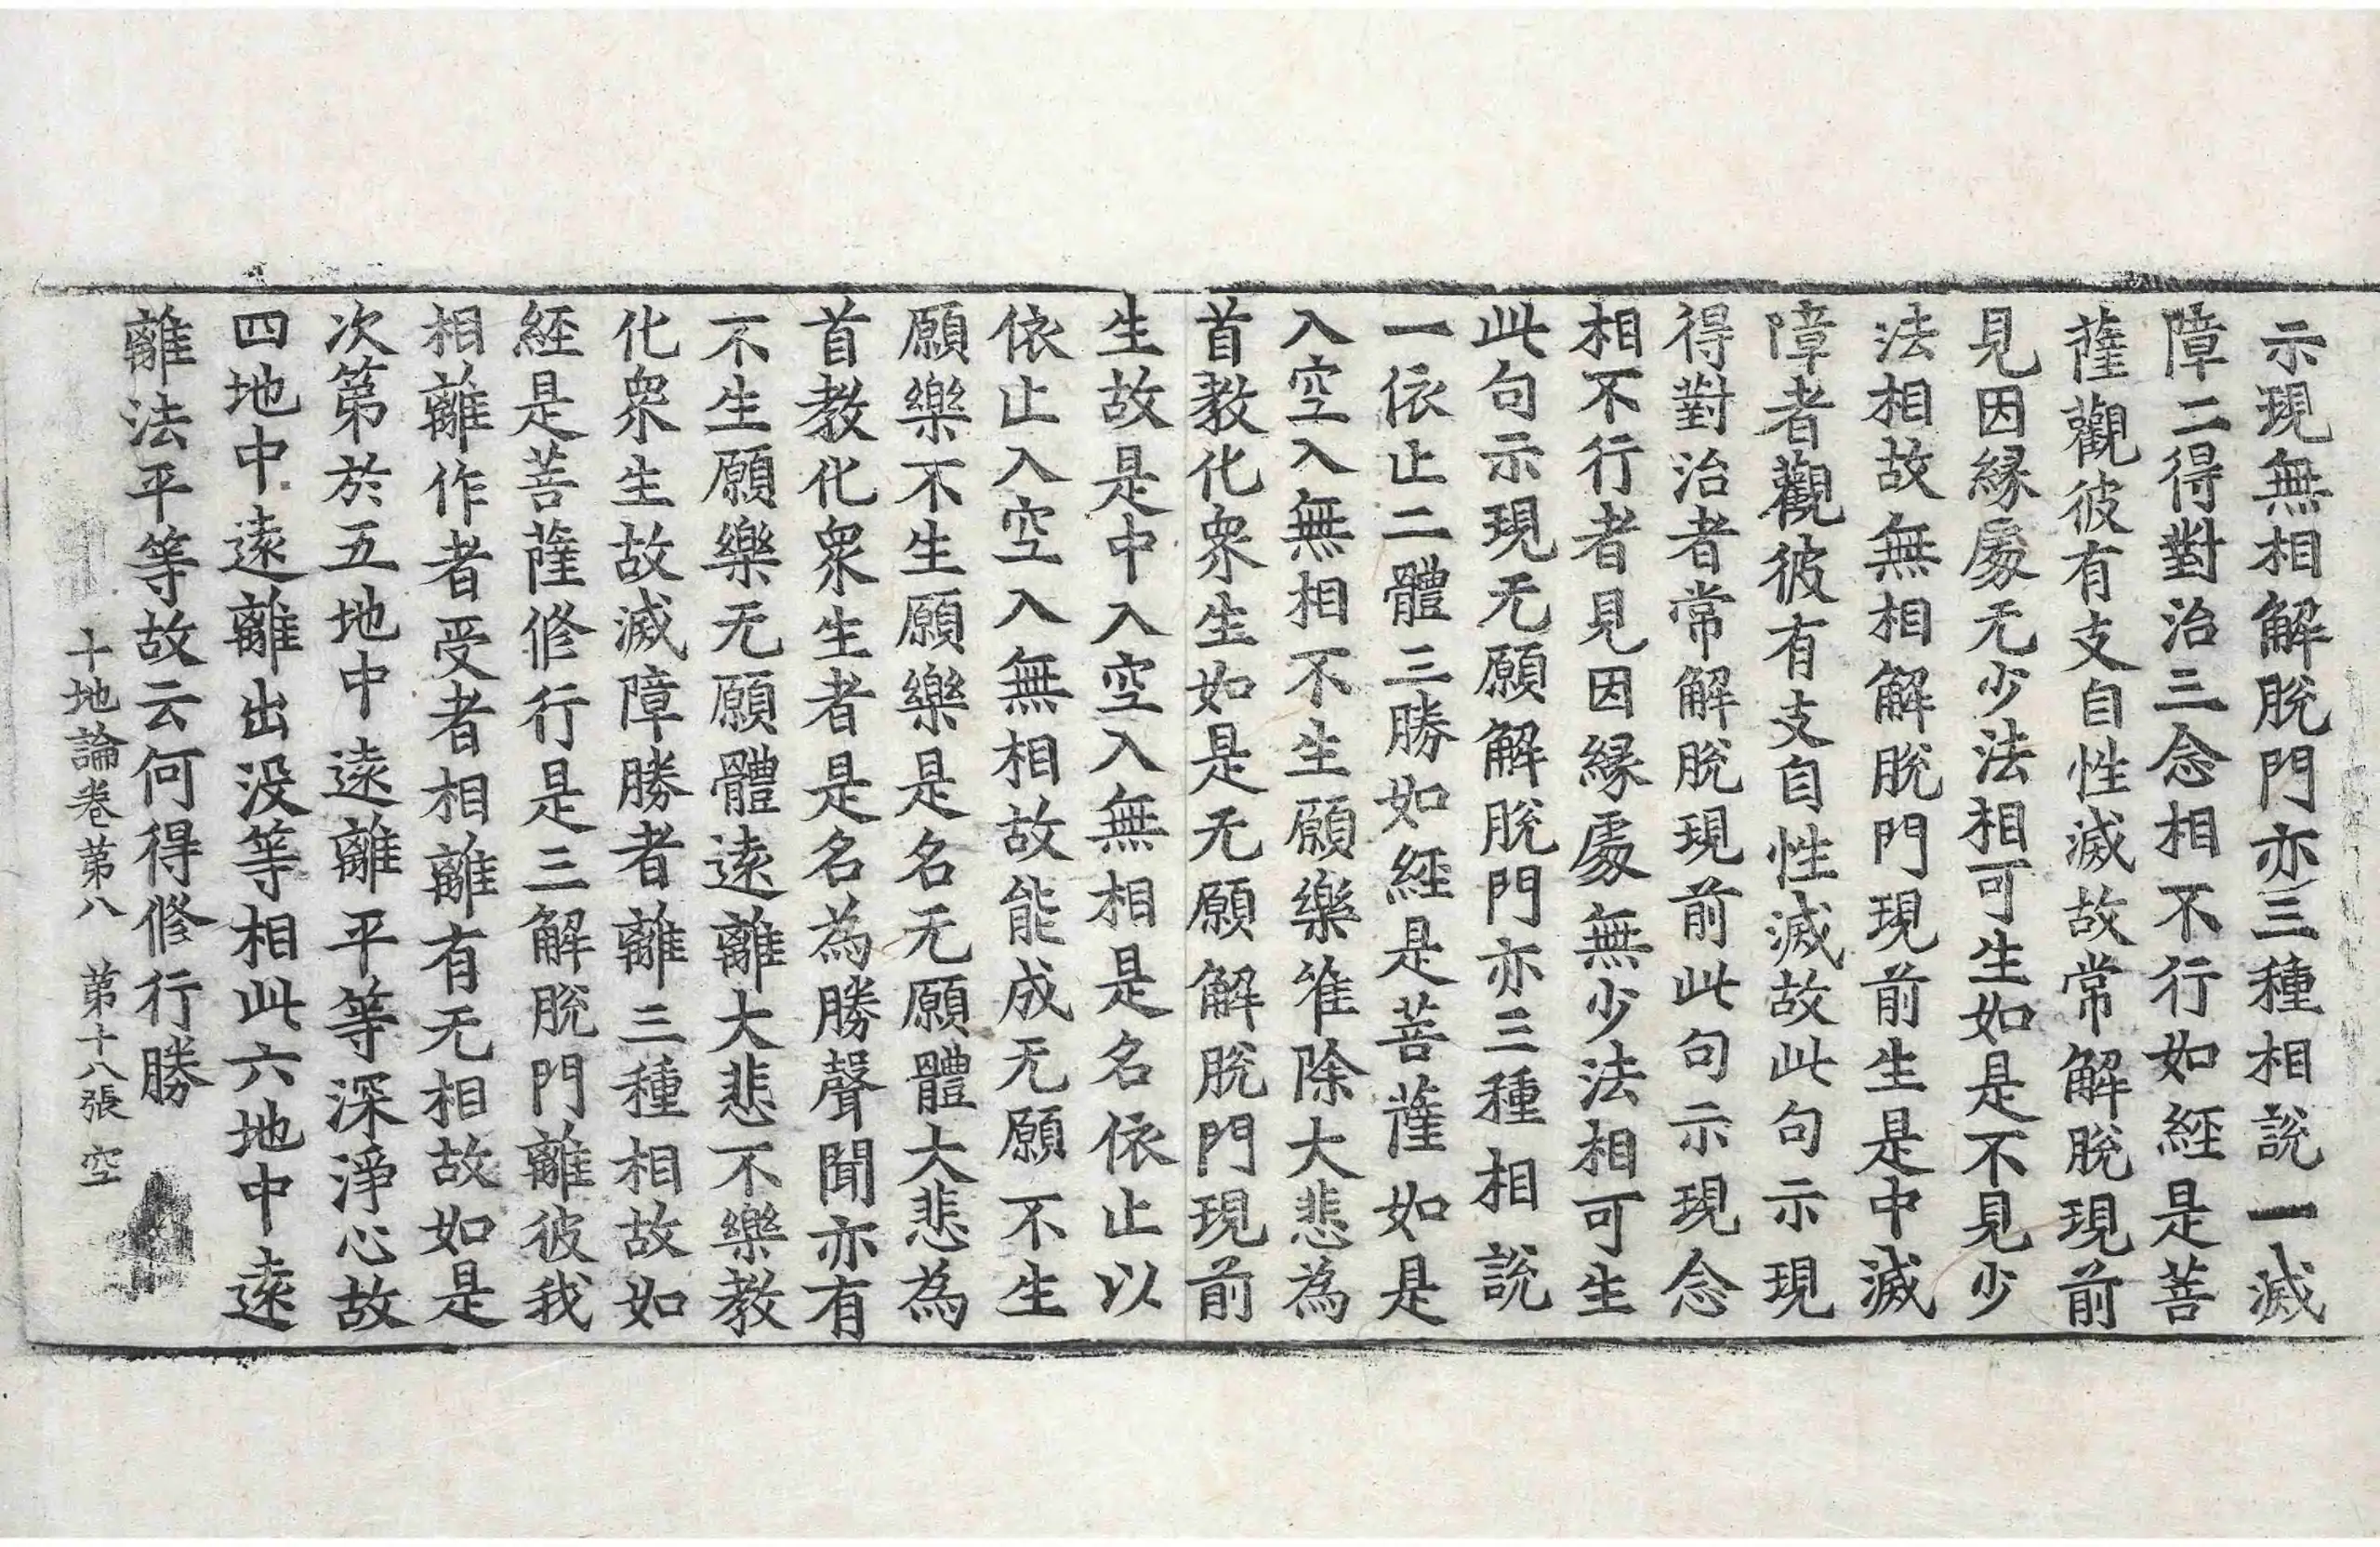 示現無相解脫門亦三種相說一滅
障二得對治三念相不行如經是菩
薩觀彼有支自性滅故常解脫現前
見因緣處无少法相可生如是不見少
法相故無相解脫門現前生是中滅
障者觀彼有支自性滅故此句示現
得對治者常解脫現前此句示現念
相不行者見因緣處無少法相可生
此句示現无願解脫門亦三種相說
一依止二體三勝如經是菩薩如是
入空入無相不生願樂唯除大悲為
首教化眾生如是无願解脫門現前
生故是中入空入無相是名依止以
依止入空入無相故能成无願不生
願樂不生願樂是名无願體大悲為
首教化眾生者是名為勝聲聞亦有
不生願樂无願體遠離大悲不樂教
化眾生故滅障勝者離三種相故如
經是菩薩修行是三解脫門離彼我
相離作者受者相離有无相故如是
次第於五地中遠離平等深淨心故
四地中遠離出没等相此六地中遠
離法平等故云何得修行勝
十地論卷第八 第十八張 空